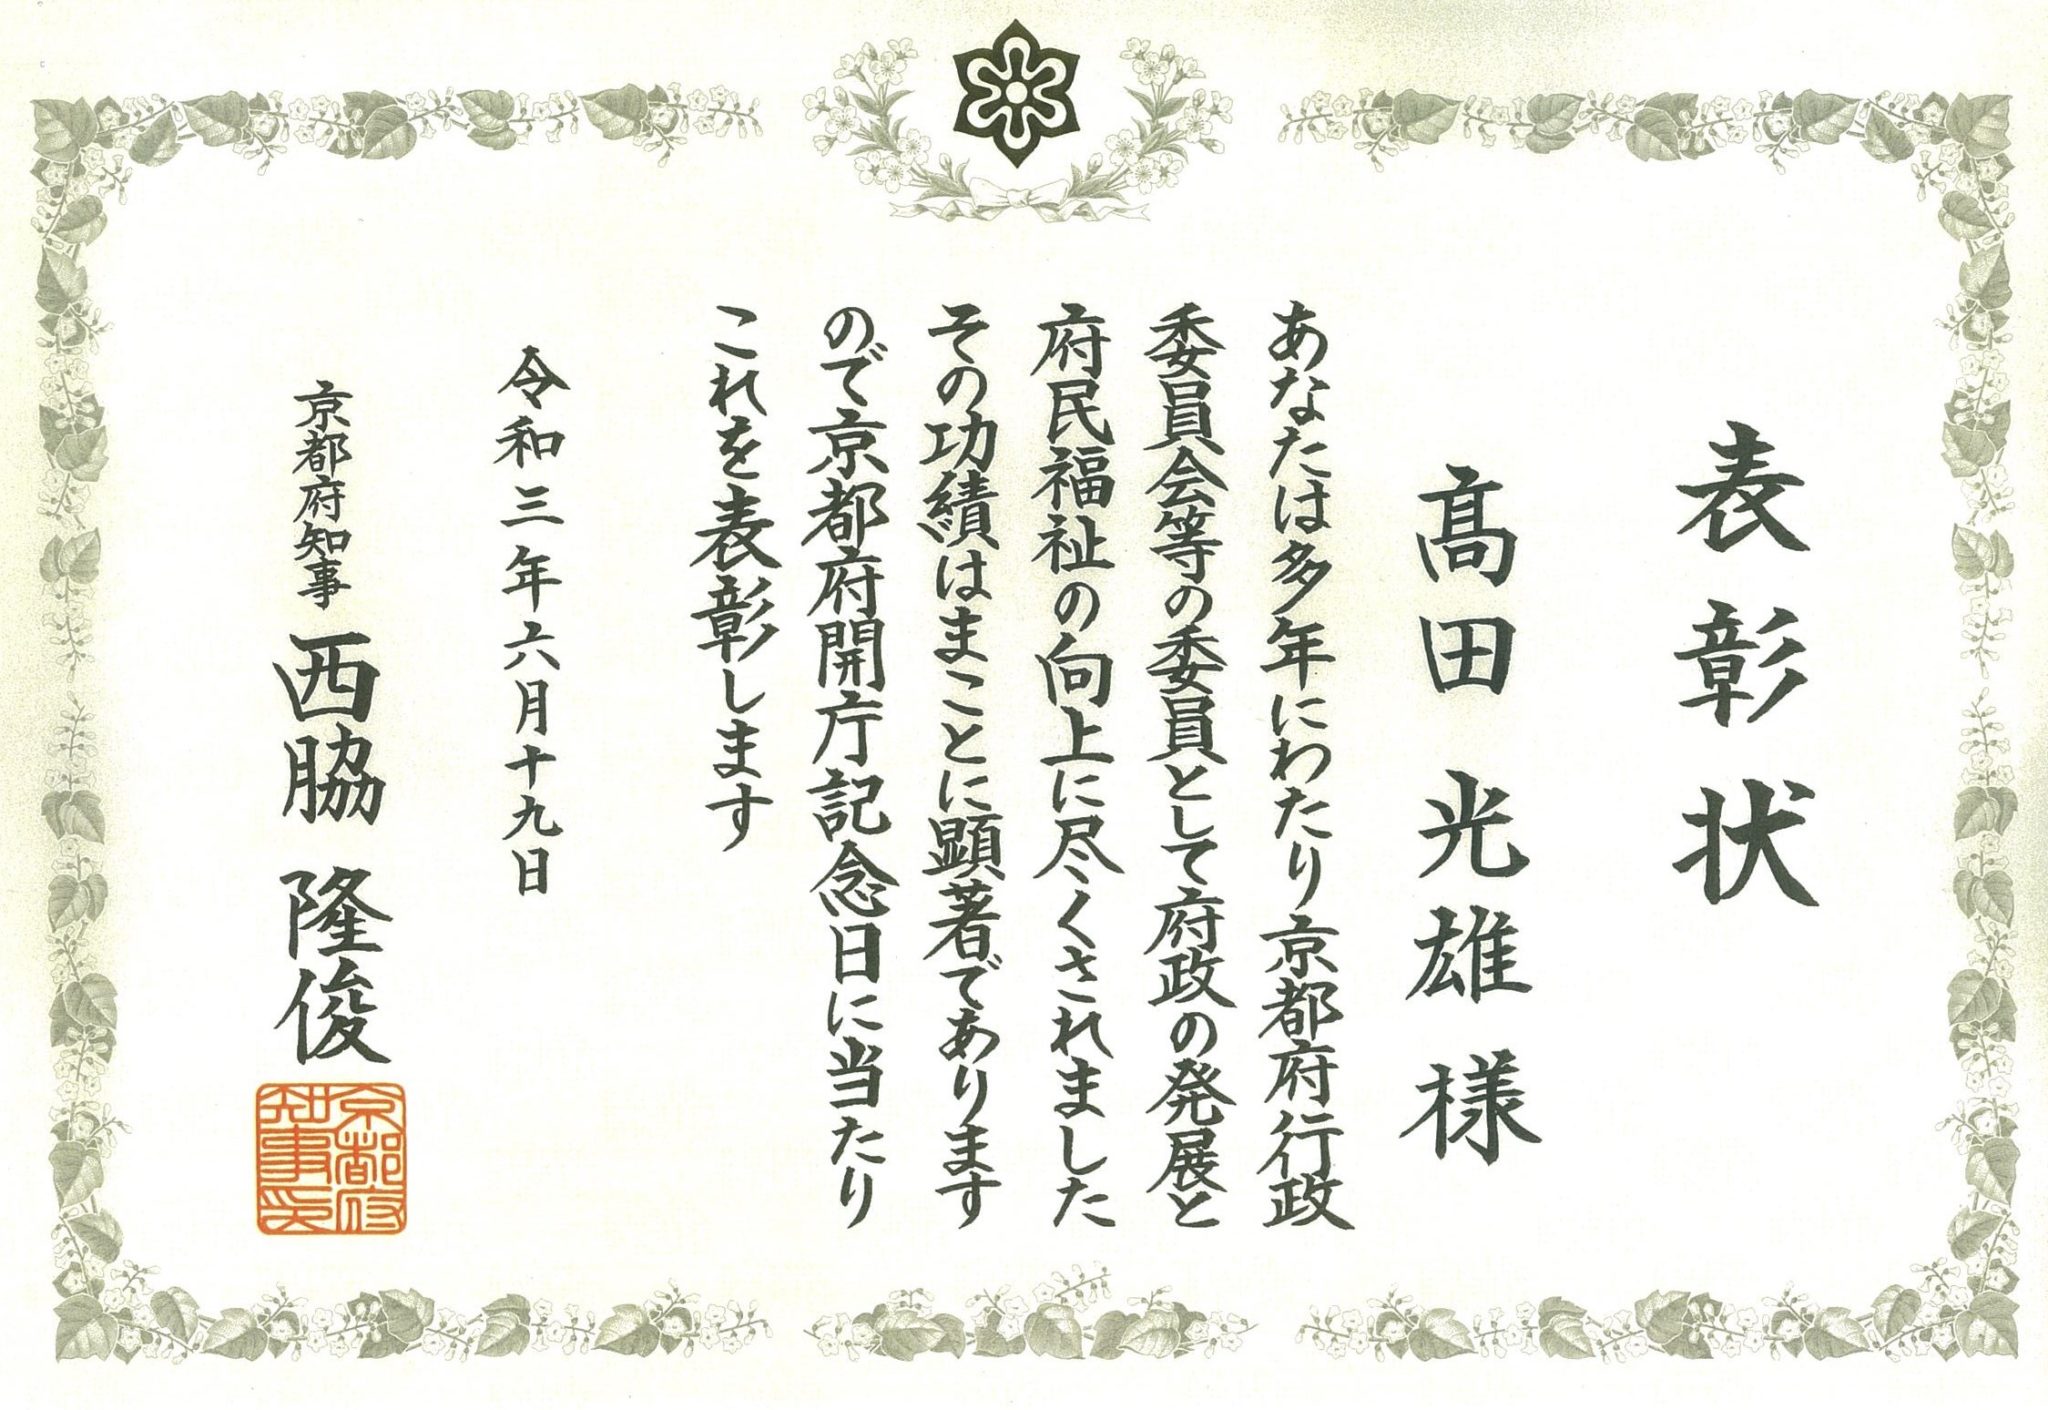 表彰状
髙田光雄様
あなたは多年にわたり京都府行政
委員会等の委員として府政の発展と
府民福祉の向上に尽くされました
その功績はまことに顕著であります
ので京都府開庁記念日に当たり
これを表彰します
令和三年六月十九日
京都府知事 西脇隆俊
京都府
知事印